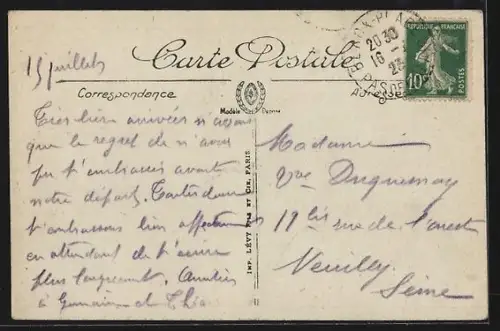 Carte Postale
15 juillet
Correspondance
Modèle Déposé
Adresse
RÉPUBLIQUE FRANÇAISE
10c
POSTES
20 30
16 -
23
PAS DE
Très bien arrivées n'ayant
que le regret de n'avoir
pu t'embrasser avant
notre départ. Toutes deux
t'embrassons bien affectueusement
en attendant de t'écrire
plus longuement. Amitiés
à Germaine et
IMP. LÉVY FILS ET CIE, PARIS
Madame
Vve Duquesnay
19 bis rue de l'ouest
Neuilly
Seine